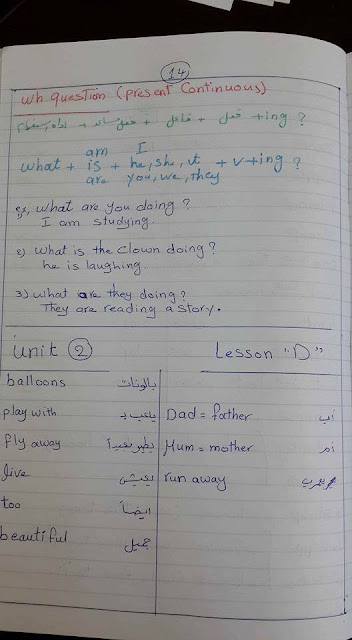 14
Wh question (present Continuous)
اداة استفهام + فعل مساعد + فاعل + فعل + ing ?
am I
What + is + he, she, it + v + ing ?
are you, we, they
ex, What are you doing ?
I am studying.
2) What is the clown doing ?
he is laughing.
3) What are they doing ?
They are reading a story.
Unit 2 Lesson "D"
balloons بالونات
play with يلعب بـ
Dad = father أب
fly away يطير بعيداً
Mum = mother أم
live يعيش
run away يهرب
too ايضاً
beautiful جميل